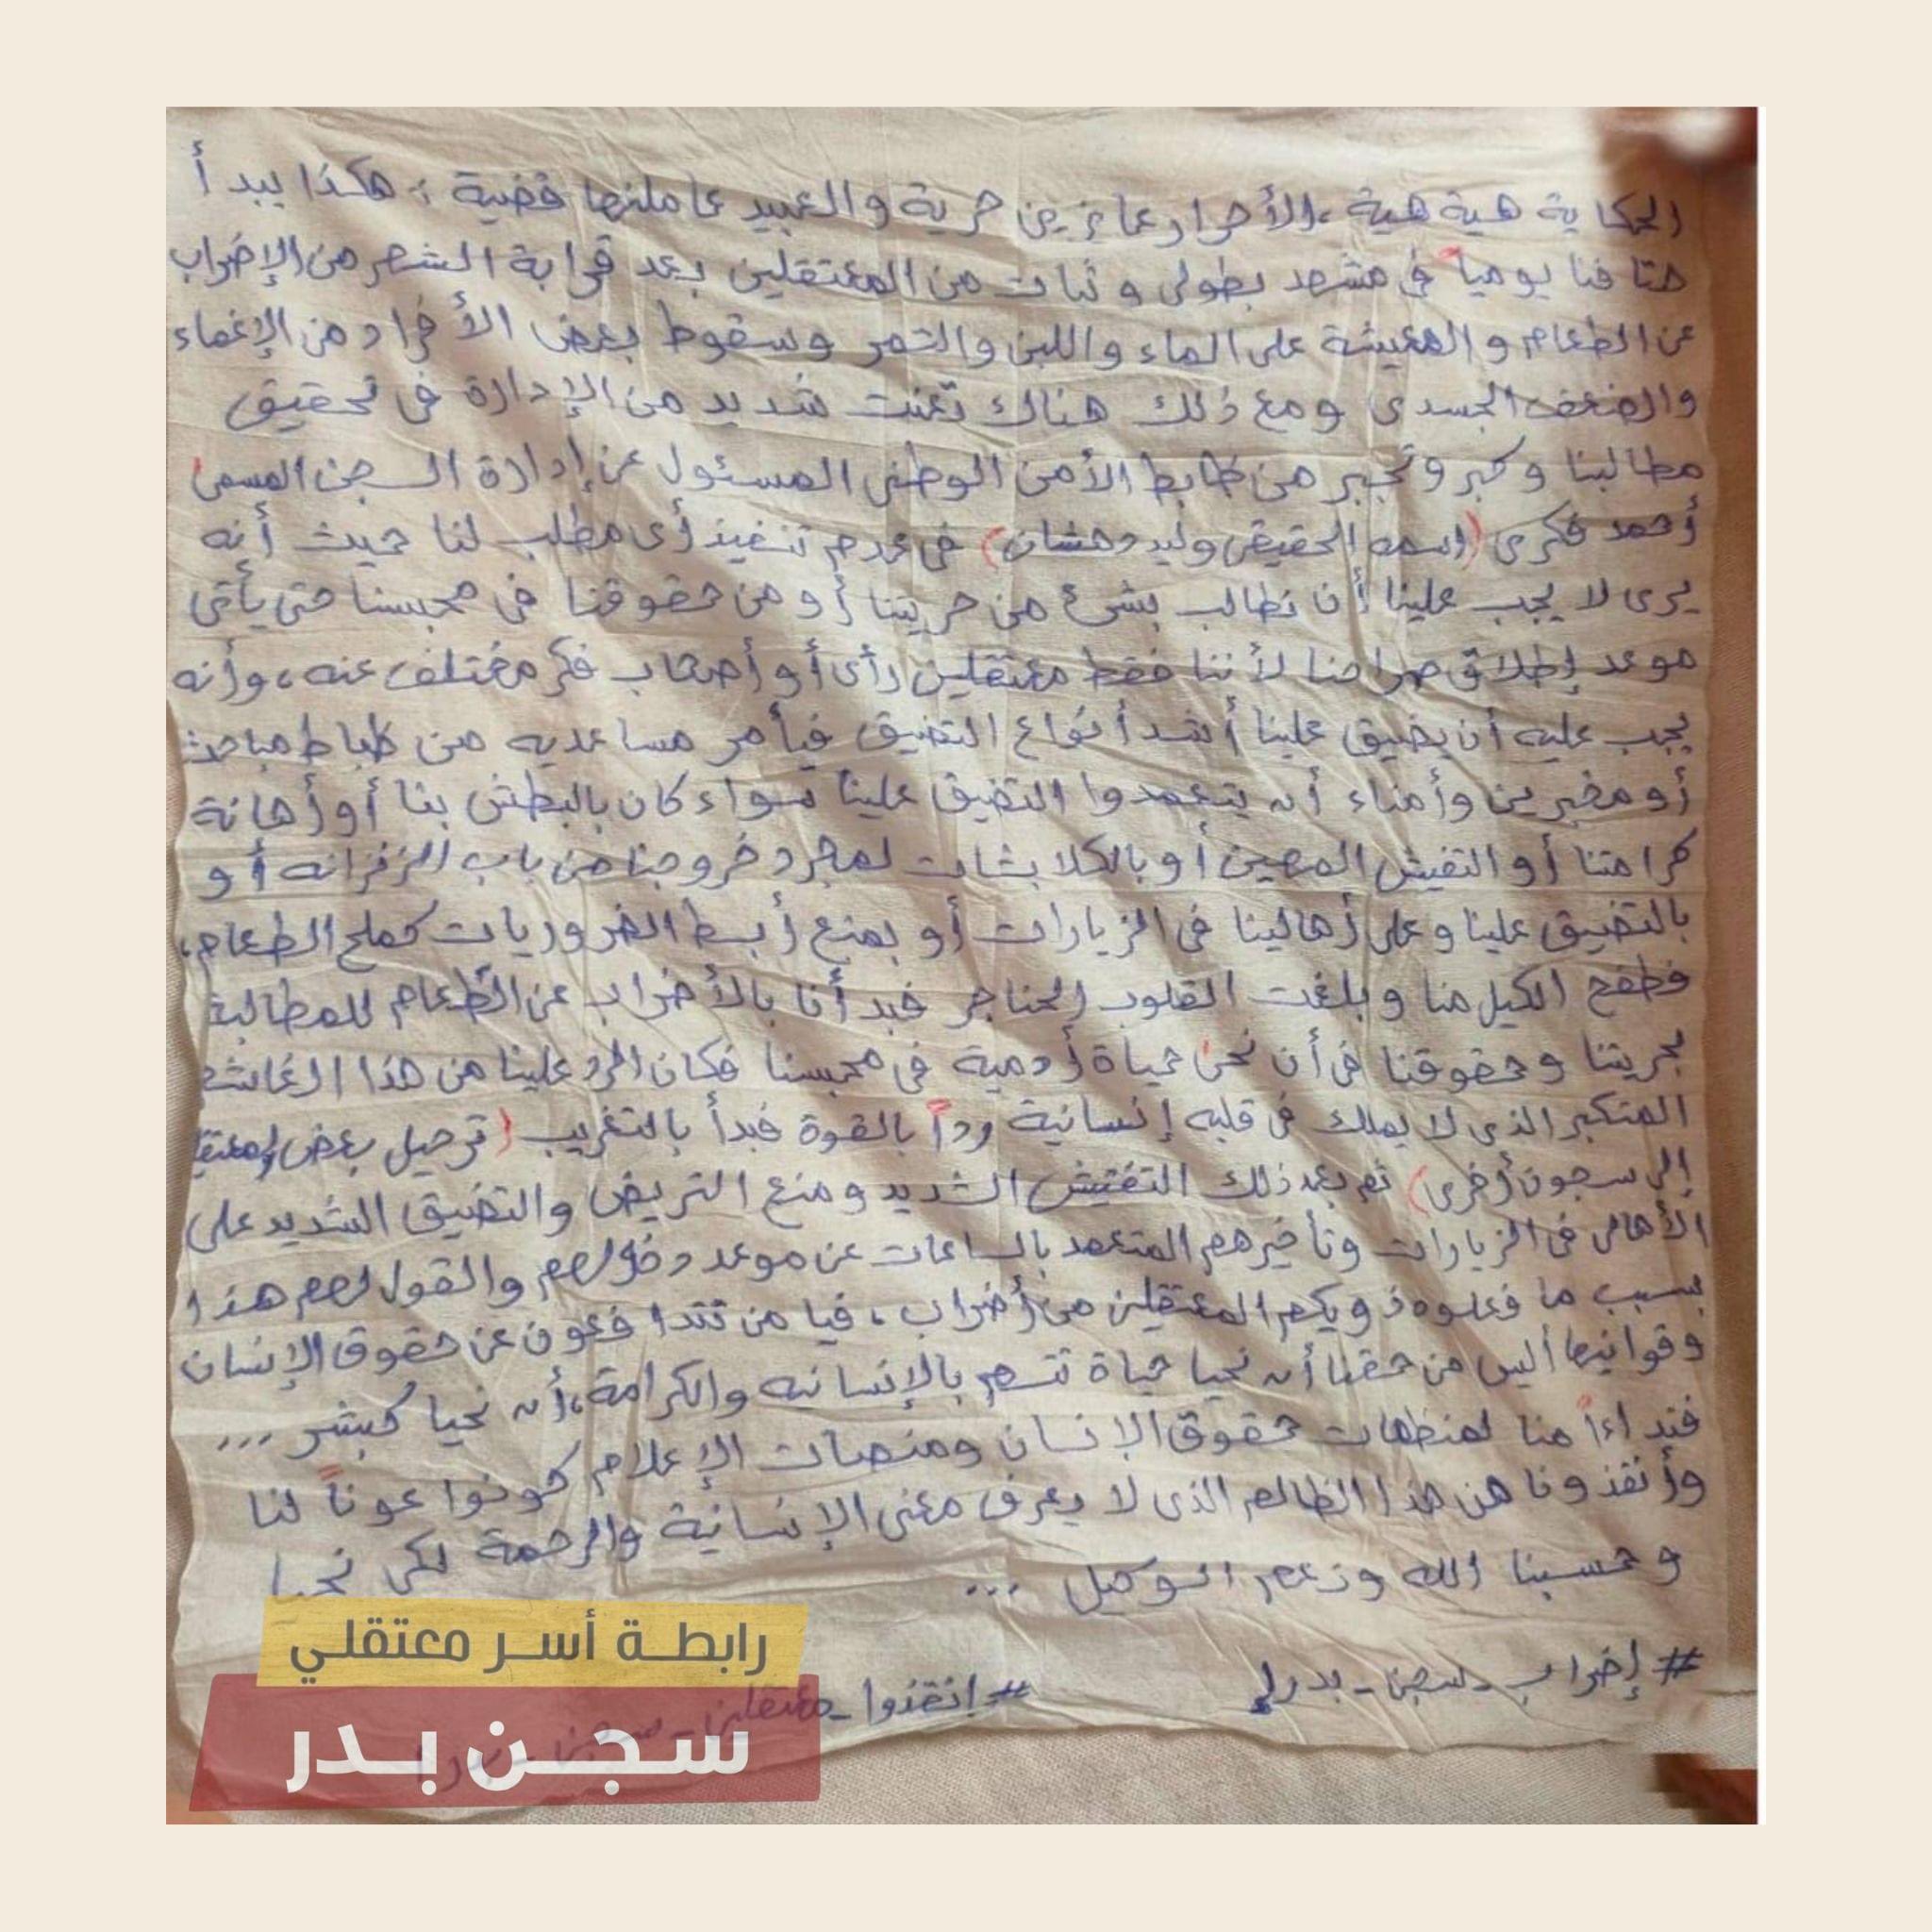 الحكاية هية هية، الأحرار عايزين حرية والعبيد عاملنها قضية ؛ هكذا يبدأ
هتافنا يومياً في مشهد بطولى وثبات من المعتقلين بعد قرابة الشهر من الإضراب
عن الطعام والمعيشة على الماء واللبن والتمر وسقوط بعض الأفراد من الإغماء
والضعف الجسدى ومع ذلك هناك تعنت شديد من الإدارة فى تحقيق
مطالبنا وكبر وتجبر من ظابط الأمن الوطنى المسئول عن إدارة السجن المسمى
أحمد فكرى (اسمه الحقيقى وليد دهشان) فى عدم تنفيذ أى مطلب لنا حيث أنه
يرى لا يجب علينا أن نطالب بشئ من حريتنا أو من حقوقنا فى محبسنا حتى يأتى
موعد إطلاق صراحنا لأننا فقط معتقلين رأى أو أصحاب فكر مختلف عنه، وأنه
يجب عليه أن يضيق علينا أشد أنواع التضيق فيأمر مساعديه من ظباط مباحث
أو مخبرين وأمناء أن يتعمدوا التضيق علينا سواء كان بالبطش بنا أو أهانة
كرامتنا أو التفيش المهين أو بالكلابشات لمجرد خروجنا من باب الزنزانه أو
بالتضييق علينا وعلى أهالينا فى الزيارات أو بمنع أبسط الضروريات كملح الطعام،
فطفح الكيل منا وبلغت القلوب الحناجر فبدأنا بالأضراب عن الطعام للمطالبة
بحريتنا وحقوقنا فى أن نحى حياة أدمية فى محبسنا فكان الرد علينا من هذا الغاشم
المتكبر الذى لا يملك فى قلبه إنسانية رداً بالقوة فبدأ بالتغريب (ترحيل بعض
إلى سجون أخرى) ثم بعد ذلك التفتيش الشديد ومنع التريض والتضيق الشديد على
الأهالى فى الزيارات وتأخيرهم المتعمد بالساعات عن موعد دخولهم والقول لهم هذا
بسبب ما فعلوه ذويكم المعتقلين من أضراب، فيا من تتدافعون عن حقوق الإنسان
وقوانينها أليس من حقنا أن نحيا حياة تتسم بالإنسانيه والكرامة، أن نحيا كبشر ...
فنداءاً منا لمنظمات حقوق الإنسان ومنصات الإعلام كونوا عوناً لنا
وأنقذونا من هذا الظالم الذى لا يعرف معنى الإنسانية والرحمة لكى نحيا
وحسبنا الله ونعم الوكيل ...
#إضراب_سجن_بدر1
#انقذوا_معتقلين_سجن_بدر1
رابطة أسر معتقلي
سجن بدر